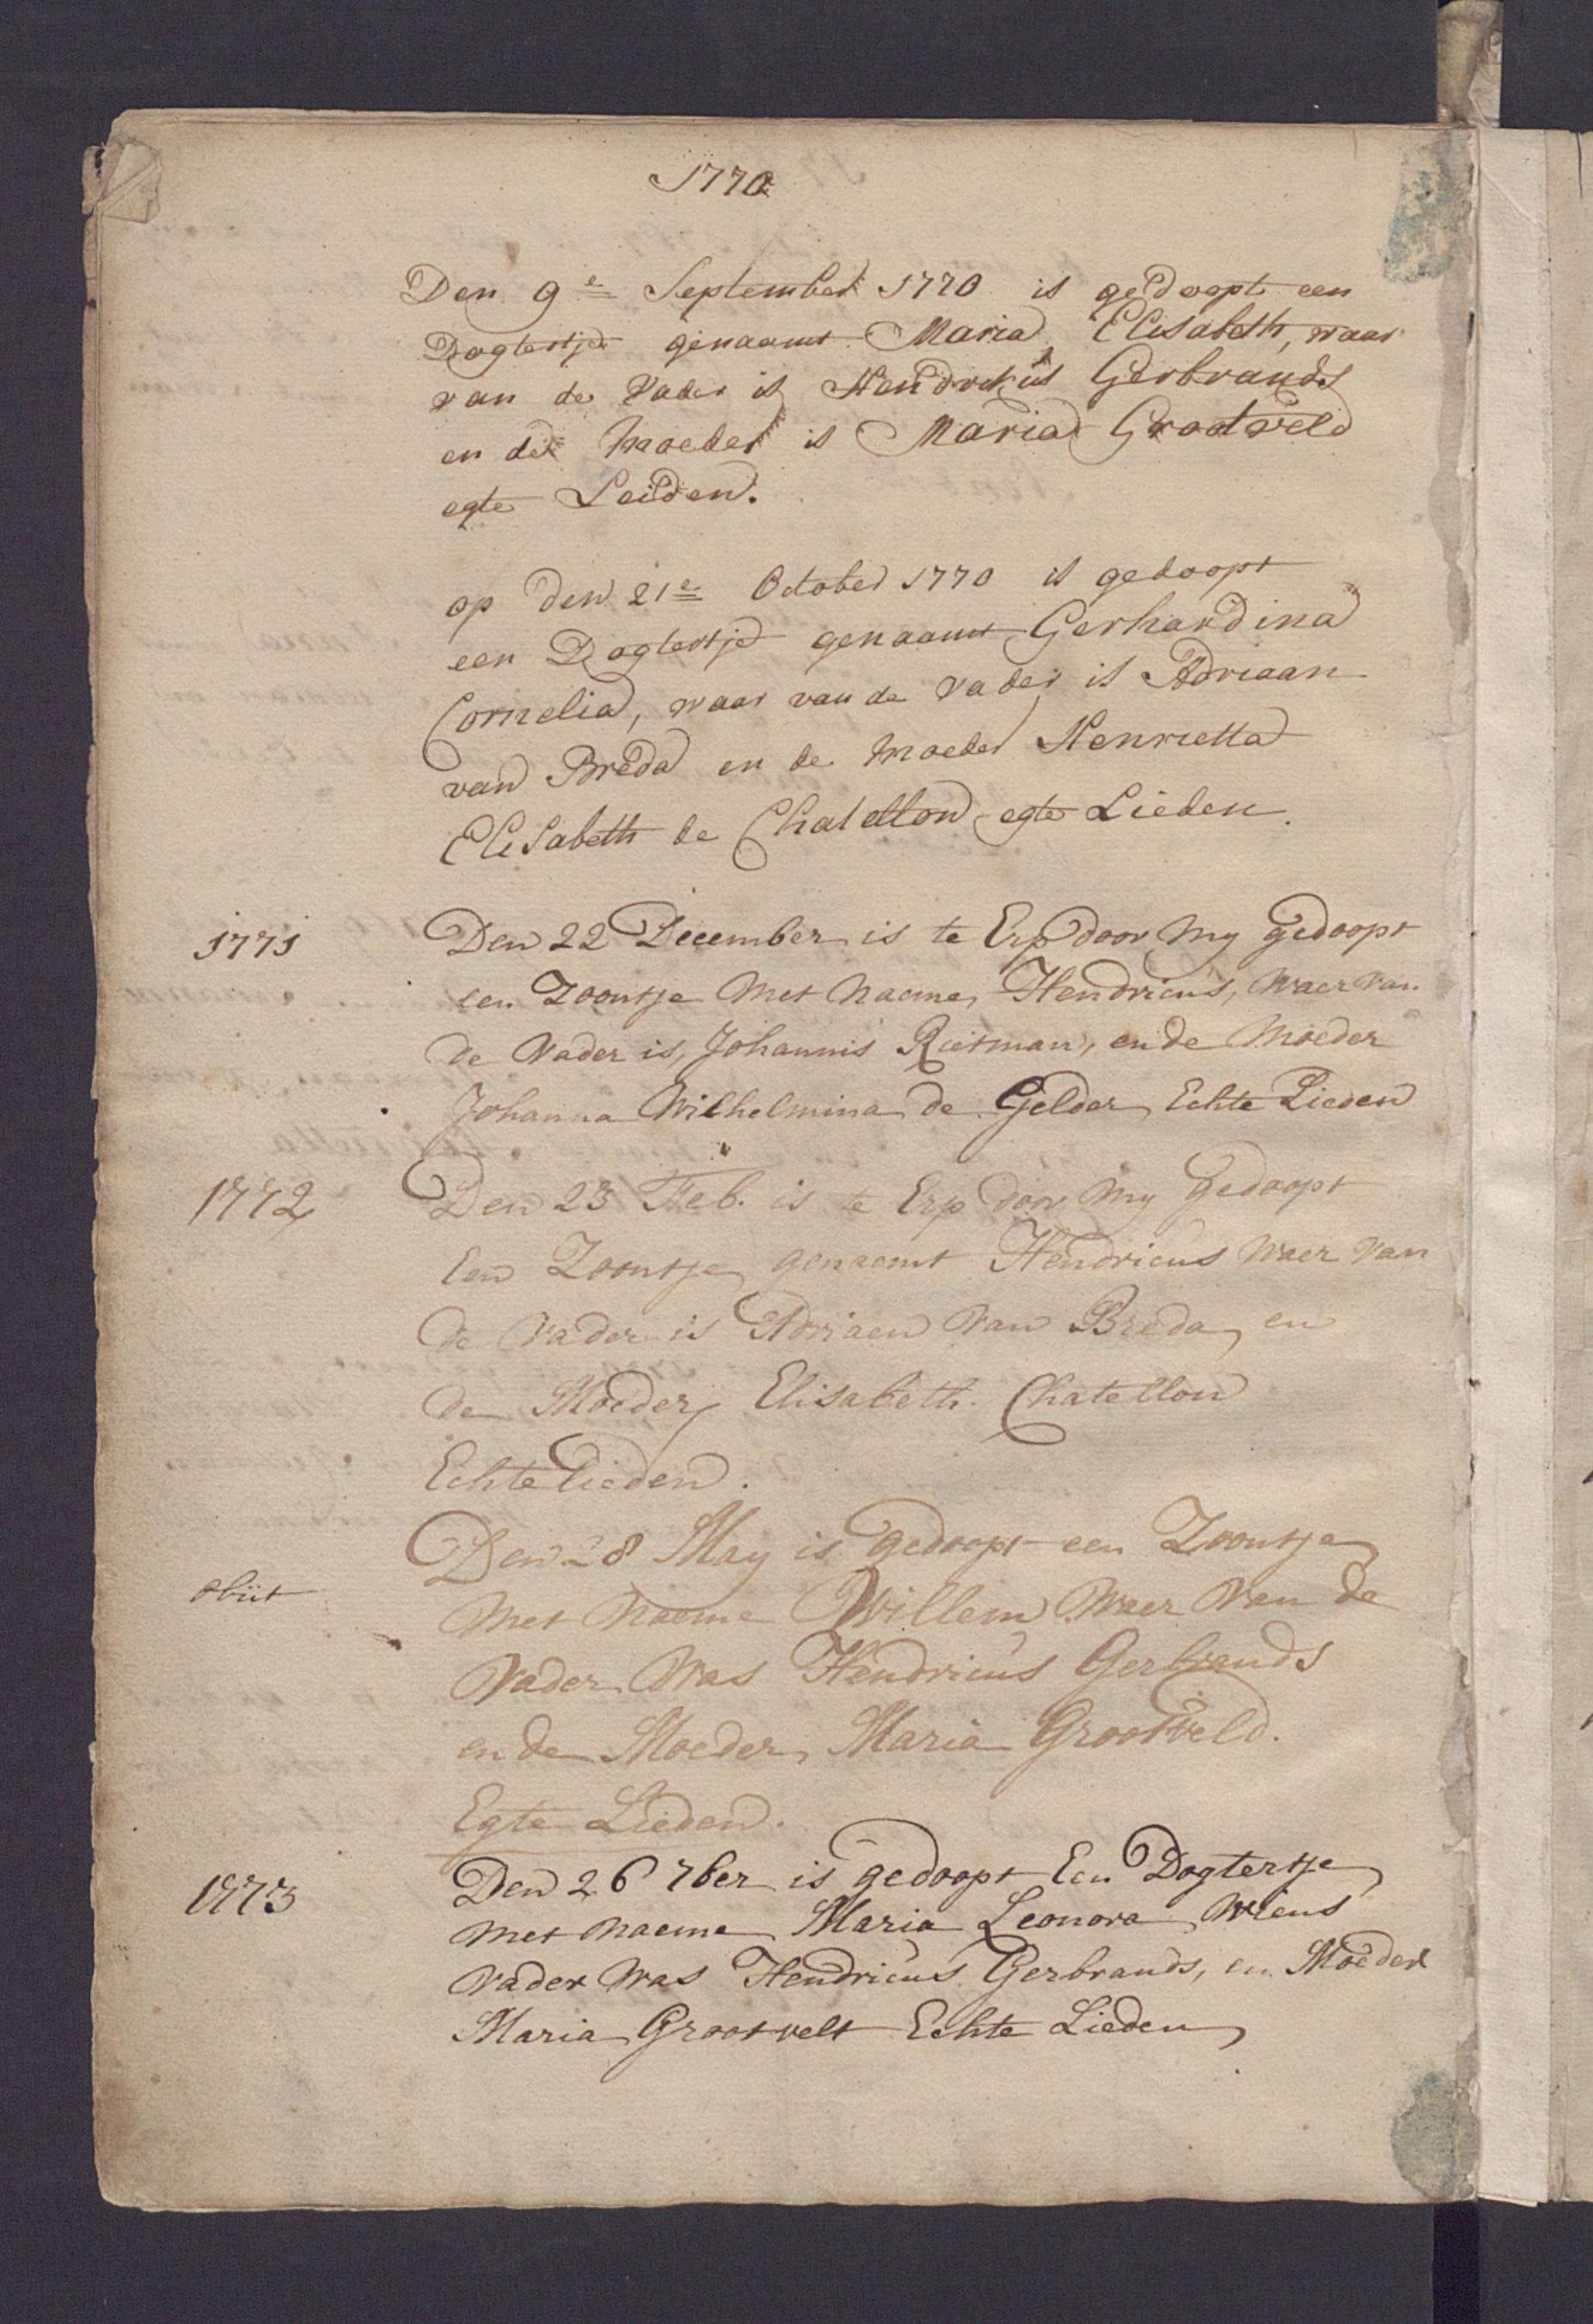 1770
Den 9e September 1770 is gedoopt een
Dogtertje genaamt Maria Elisabeth, waar
van de Vader is Hendrikus Gerbrands
en de moeder is Maria Grootveld
egte Leiden.
op den 21e October 1770 is gedoopt
een Dogtertje genaamt Gerhardina
Cornelia, waar van de vader is Adriaan
van Breda en de moeder Henrietta
Elisabeth de Chatellon egte Lieden.
1771 Den 22 December is te Erp door my gedoopt
een Zoontje met naeme, Hendricus, waer van
de Vader is, Johannis Rietman, en de Moeder
Johanna Wilhelmina de Gelder, Echte Lieden
1772 Den 23 Feb. is te Erp door my gedoopt
Een Zoontje genaemt Hendricus waer van
de Vader is Adriaen van Breda, en
de Moeder, Elisabeth. Chatellon
Echte lieden.
Den 28 May is gedoopt een Zoontje
obiit met naeme Willem waer van de
Vader was Hendricus Gerbrands
en de Moeder, Maria Grootveld.
Egte Lieden.
1773 Den 26 7ber is gedoopt Een Dogtertje
met naeme Maria Leonora, wiens
Vader was Hendricus Gerbrands, en Moeder
Maria Grootvelt Echte Lieden